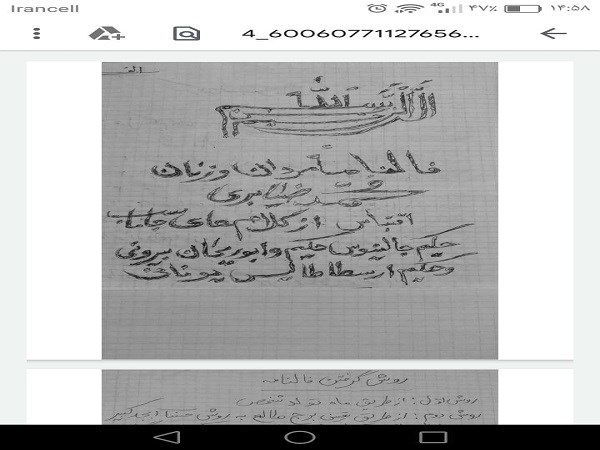 Irancell
4G ۴۷٪ ۱۴:۵۸
4_60060771127656...
الف
فالنامه مردان و زنان
محمد
اقتباس از کلام های
حکیم جالینوس حکیم و ابوریحان بیرونی
و حکیم ارسطاطالیس یونانی
روش گرفتن فالنامه
روش اول: از طریق ماه تولد شخص
روش دوم: از طریق تعیین برج طالع به روش ابجد کبیر